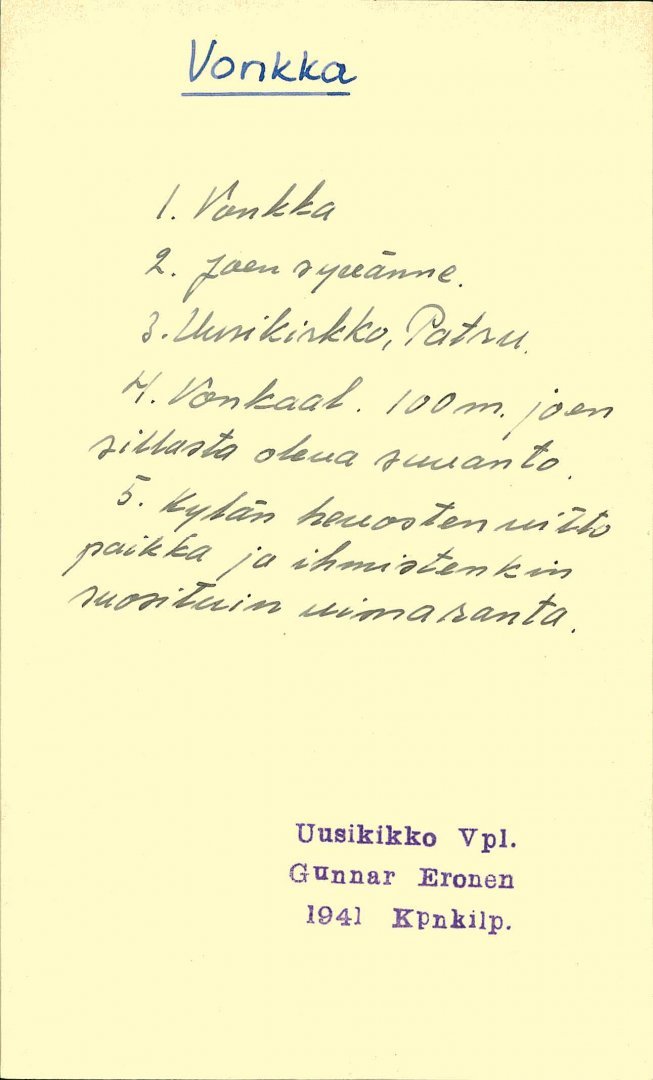 Vonkka
1. Vonkka
2. Joen syvänne.
3. Uusikirkko, Patru.
4. Vonkaal. 100 m. joen
sillasta oleva suvanto.
5. Kylän hevosten uitto
paikka ja ihmistenkin
suosituin uimaranta.
Uusikikko Vpl.
Gunnar Eronen
1941 Kpnkilp.